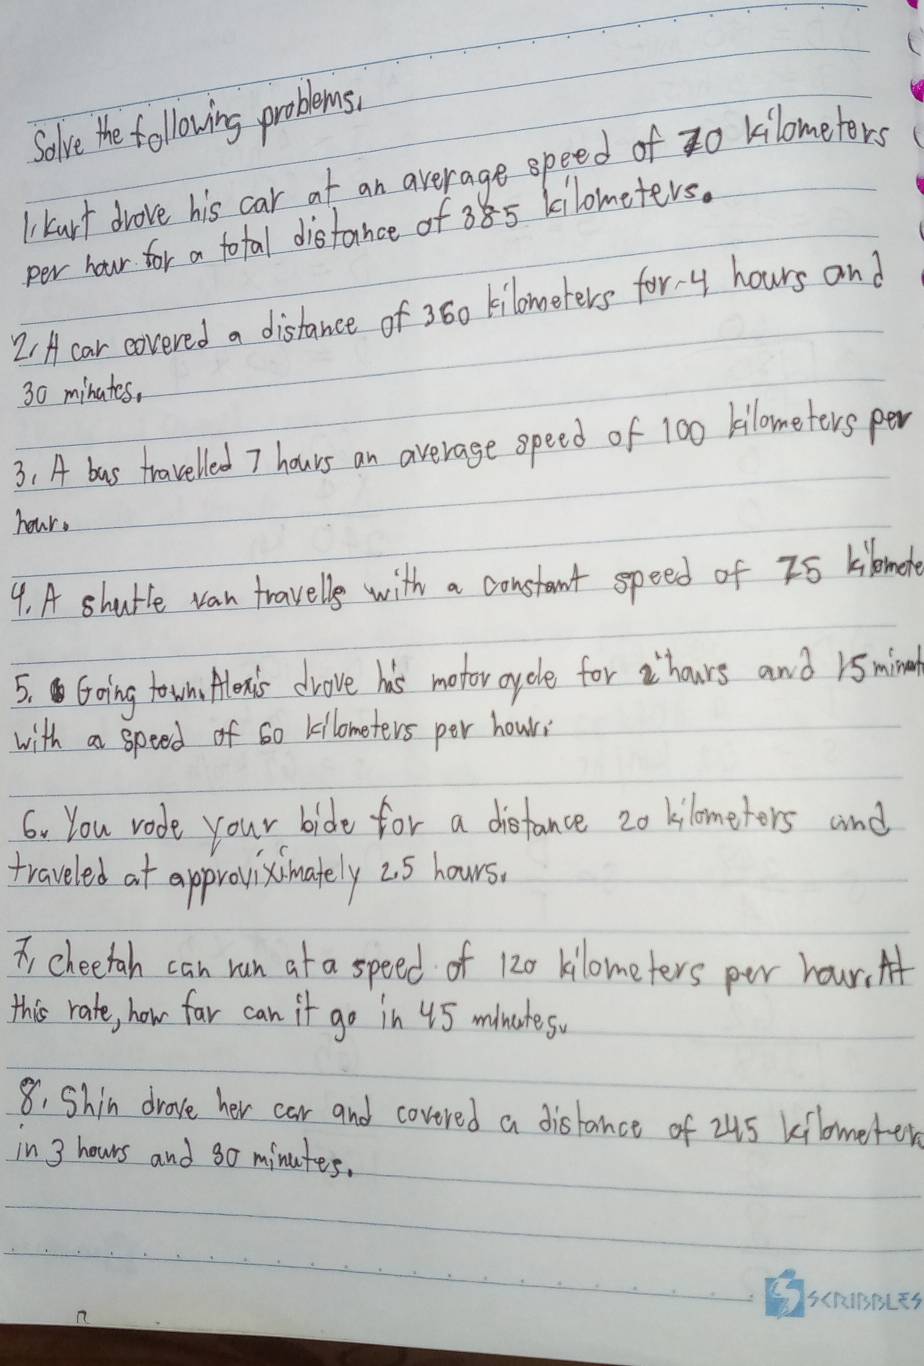 Solve the following problems.
1. Kurt drove his car at an average speed of 70 kilometers
per hour for a total distance of 385 kilometers.
2. A car covered a distance of 360 kilometers for 4 hours and
30 minutes.
3. A bus travelled 7 hours an average speed of 100 kilometers per
hour.
4. A shuttle van travells with a constant speed of 75 kilomete
5. Going town, Alexis drove his motorcycle for 2 hours and 15 minut
with a speed of 60 kilometers per hour.
6. You rode your bide for a distance 20 kilometers and
traveled at approviximately 2.5 hours.
7. Cheetah can run at a speed of 120 kilometers per hour. At
this rate, how far can it go in 45 minutes.
8. Shin drove her car and covered a distance of 245 kilometers
in 3 hours and 30 minutes.
SCRIBBLES